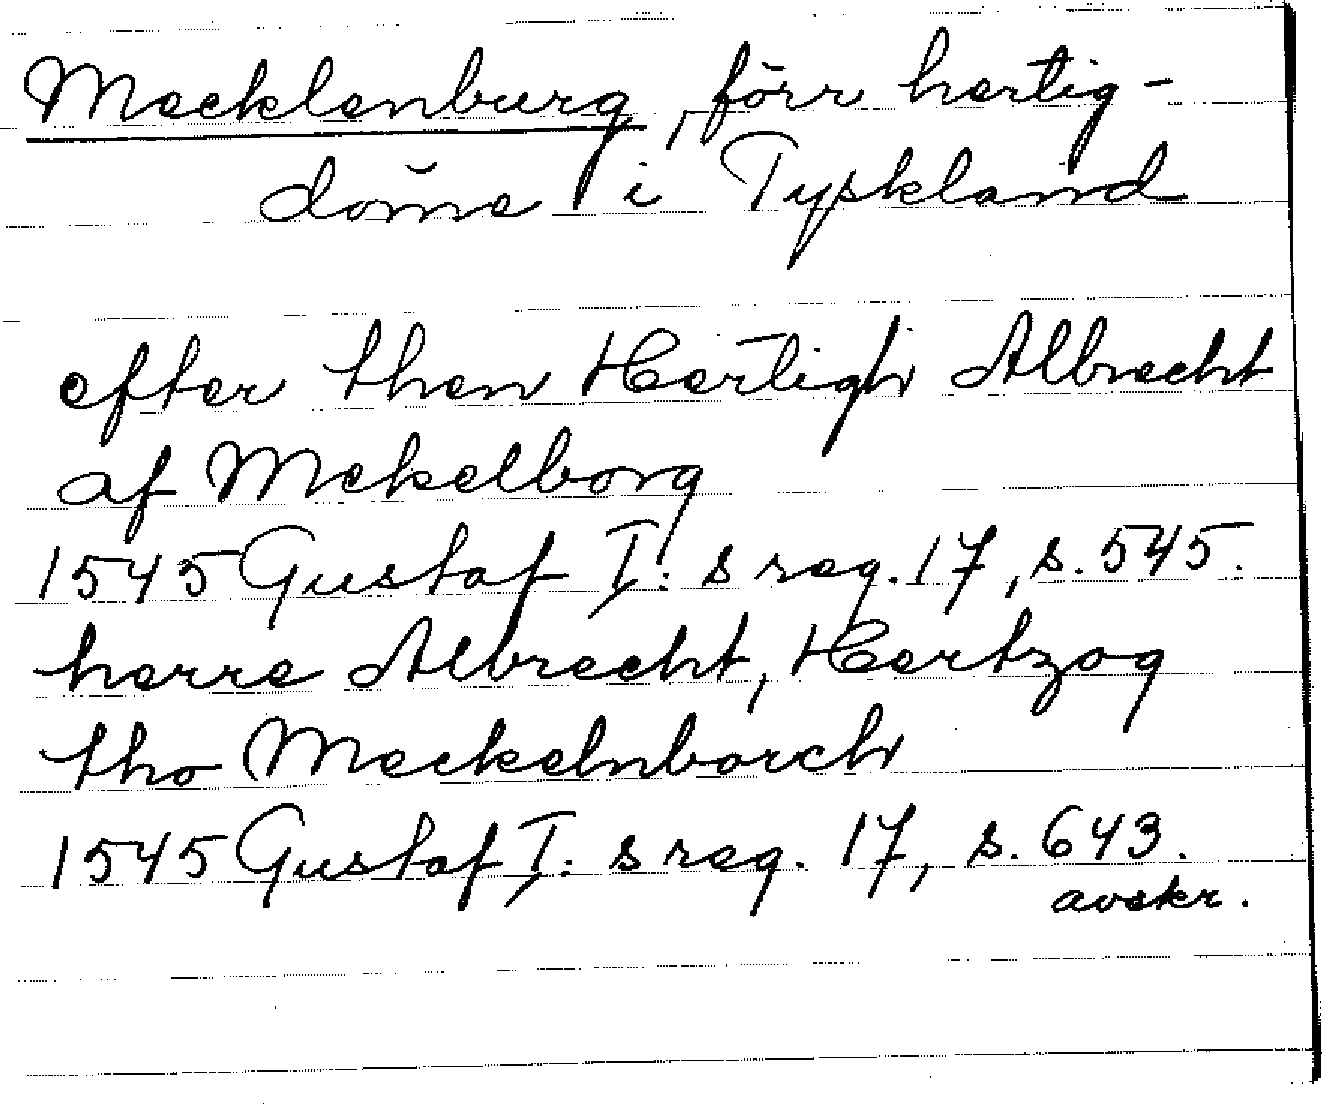 Mecklenburg, förr hertig-
döme i Tyskland
efter then Hertigh Albrecht
af Mekelborg
1545 Gustaf I:s reg. 17, s. 545.
herre Albrecht, Hertzog
tho Meckelnborch
1545 Gustaf I:s reg. 17, s. 643.
avskr.